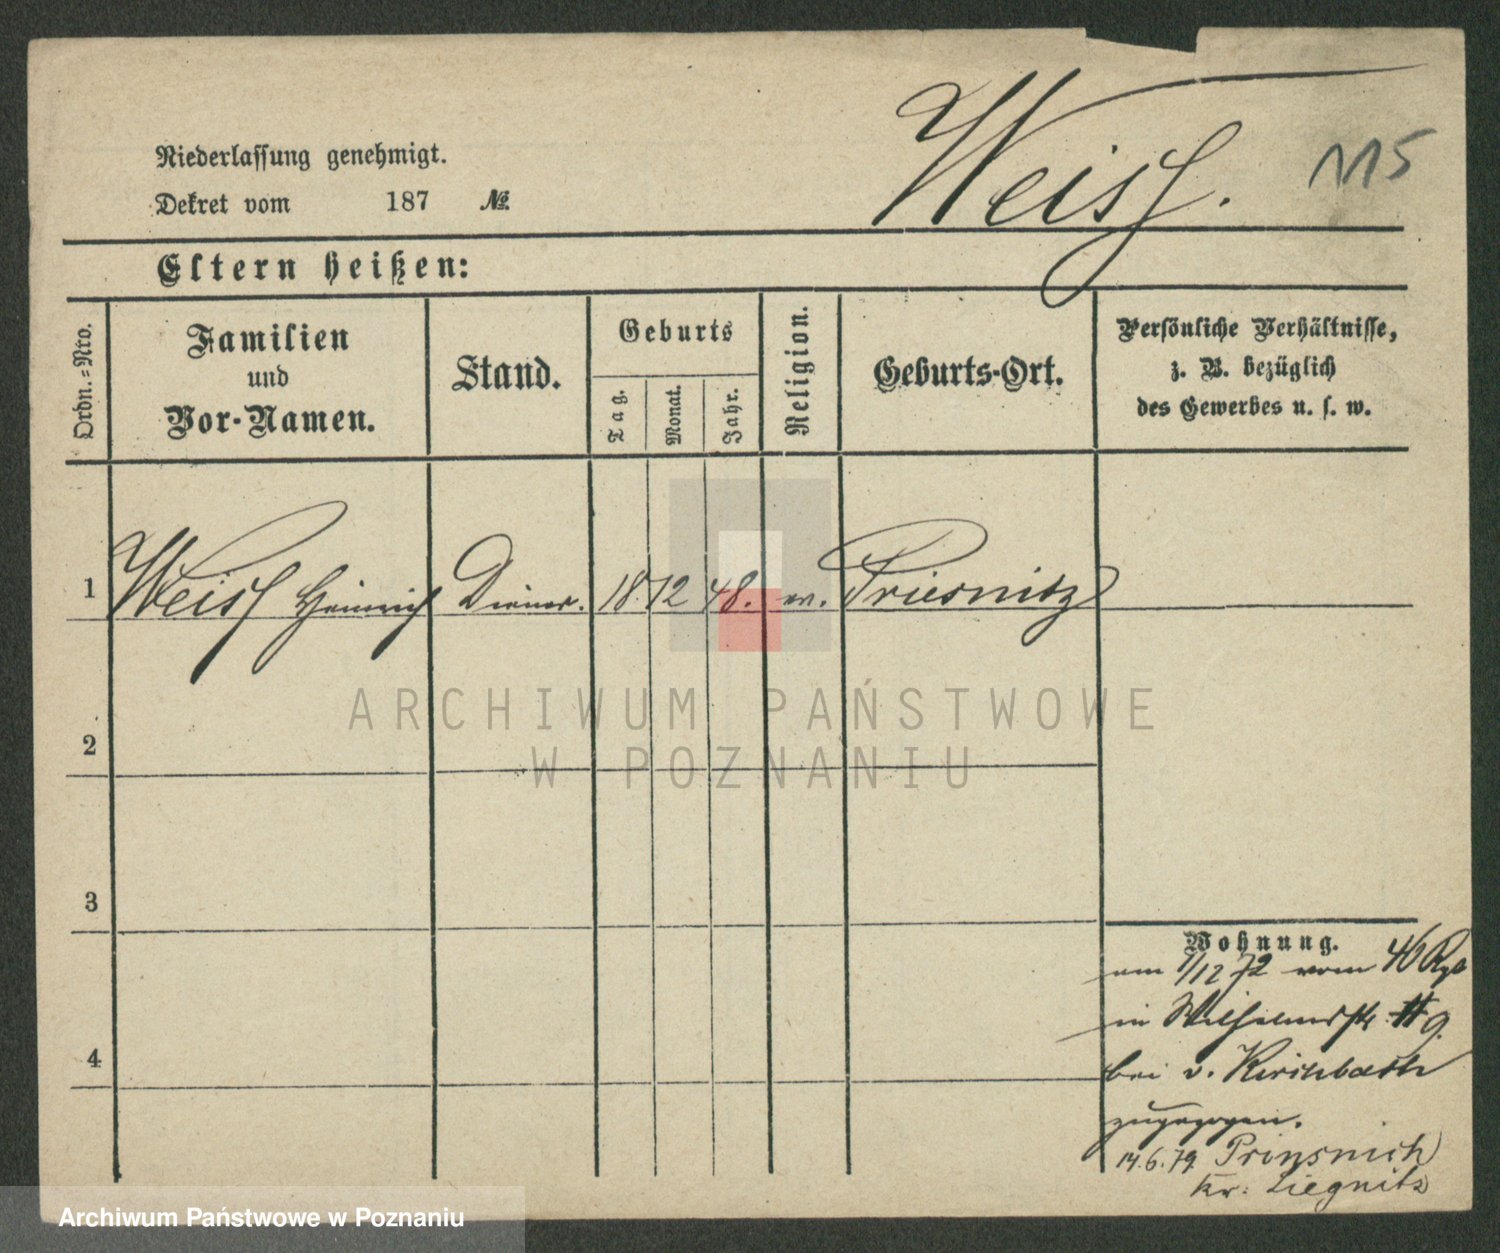 Niederlassung genehmigt.
Dekret vom 187 №
Weiss.
115
Eltern heißen:
Ordn.-Nro.
Familien
und
Vor-Namen.
Stand.
Geburts
Tag.
Monat.
Jahr.
Religion.
Geburts-Ort.
Persönliche Verhältnisse,
z. B. bezüglich
des Gewerbes u. s. w.
1 Weiss Heinrich Diener. 18. 12 48. ev. Priesnitz
ARCHIWUM PAŃSTWOWE
W POZNANIU
2
3
4
Wohnung.
am 1/12 72 vom 46 Rgt
in Wilhelmstr. 9.
bei v. Kirchbach
zugezogen.
14.6.79
Kr: Liegnitz
Archiwum Państwowe w Poznaniu